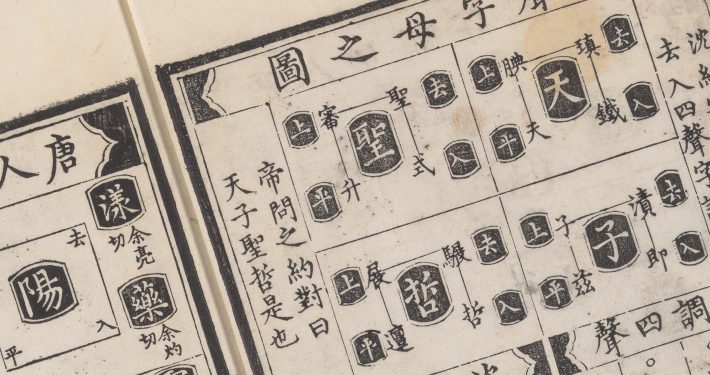 字母之圖
沈約
去入四聲字
天
去 瑱
上 腆
入 鐵
平 天
聖
去 聖
上 審
入 式
平 升
子
去 漬
上 子
入 即
平 茲
哲
去
上 展
入 哲
平 邅
帝問之約對曰
天子聖哲是也
調四聲
唐人
漾 余亮切
藥 余灼切
陽
去
入
平